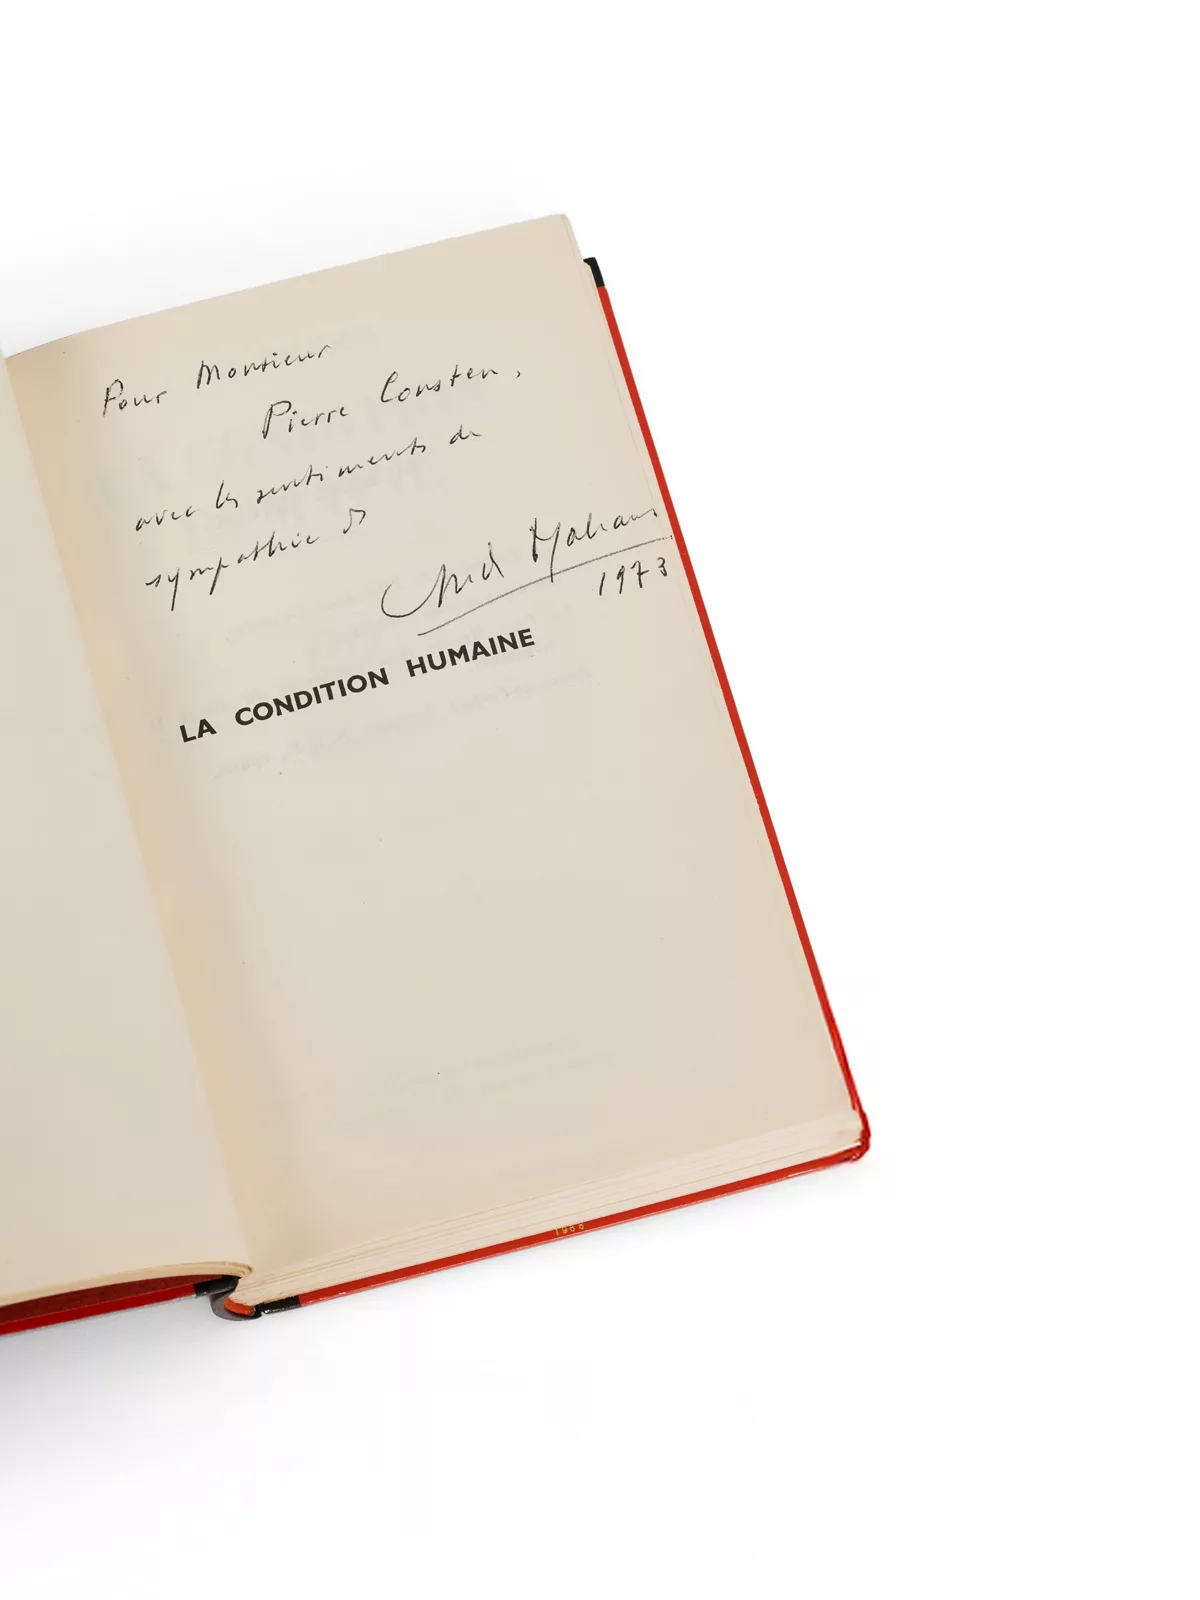 Pour Monsieur
Pierre Consten,
avec les sentiments de
sympathie d
André Malraux
1973
LA CONDITION HUMAINE
1966